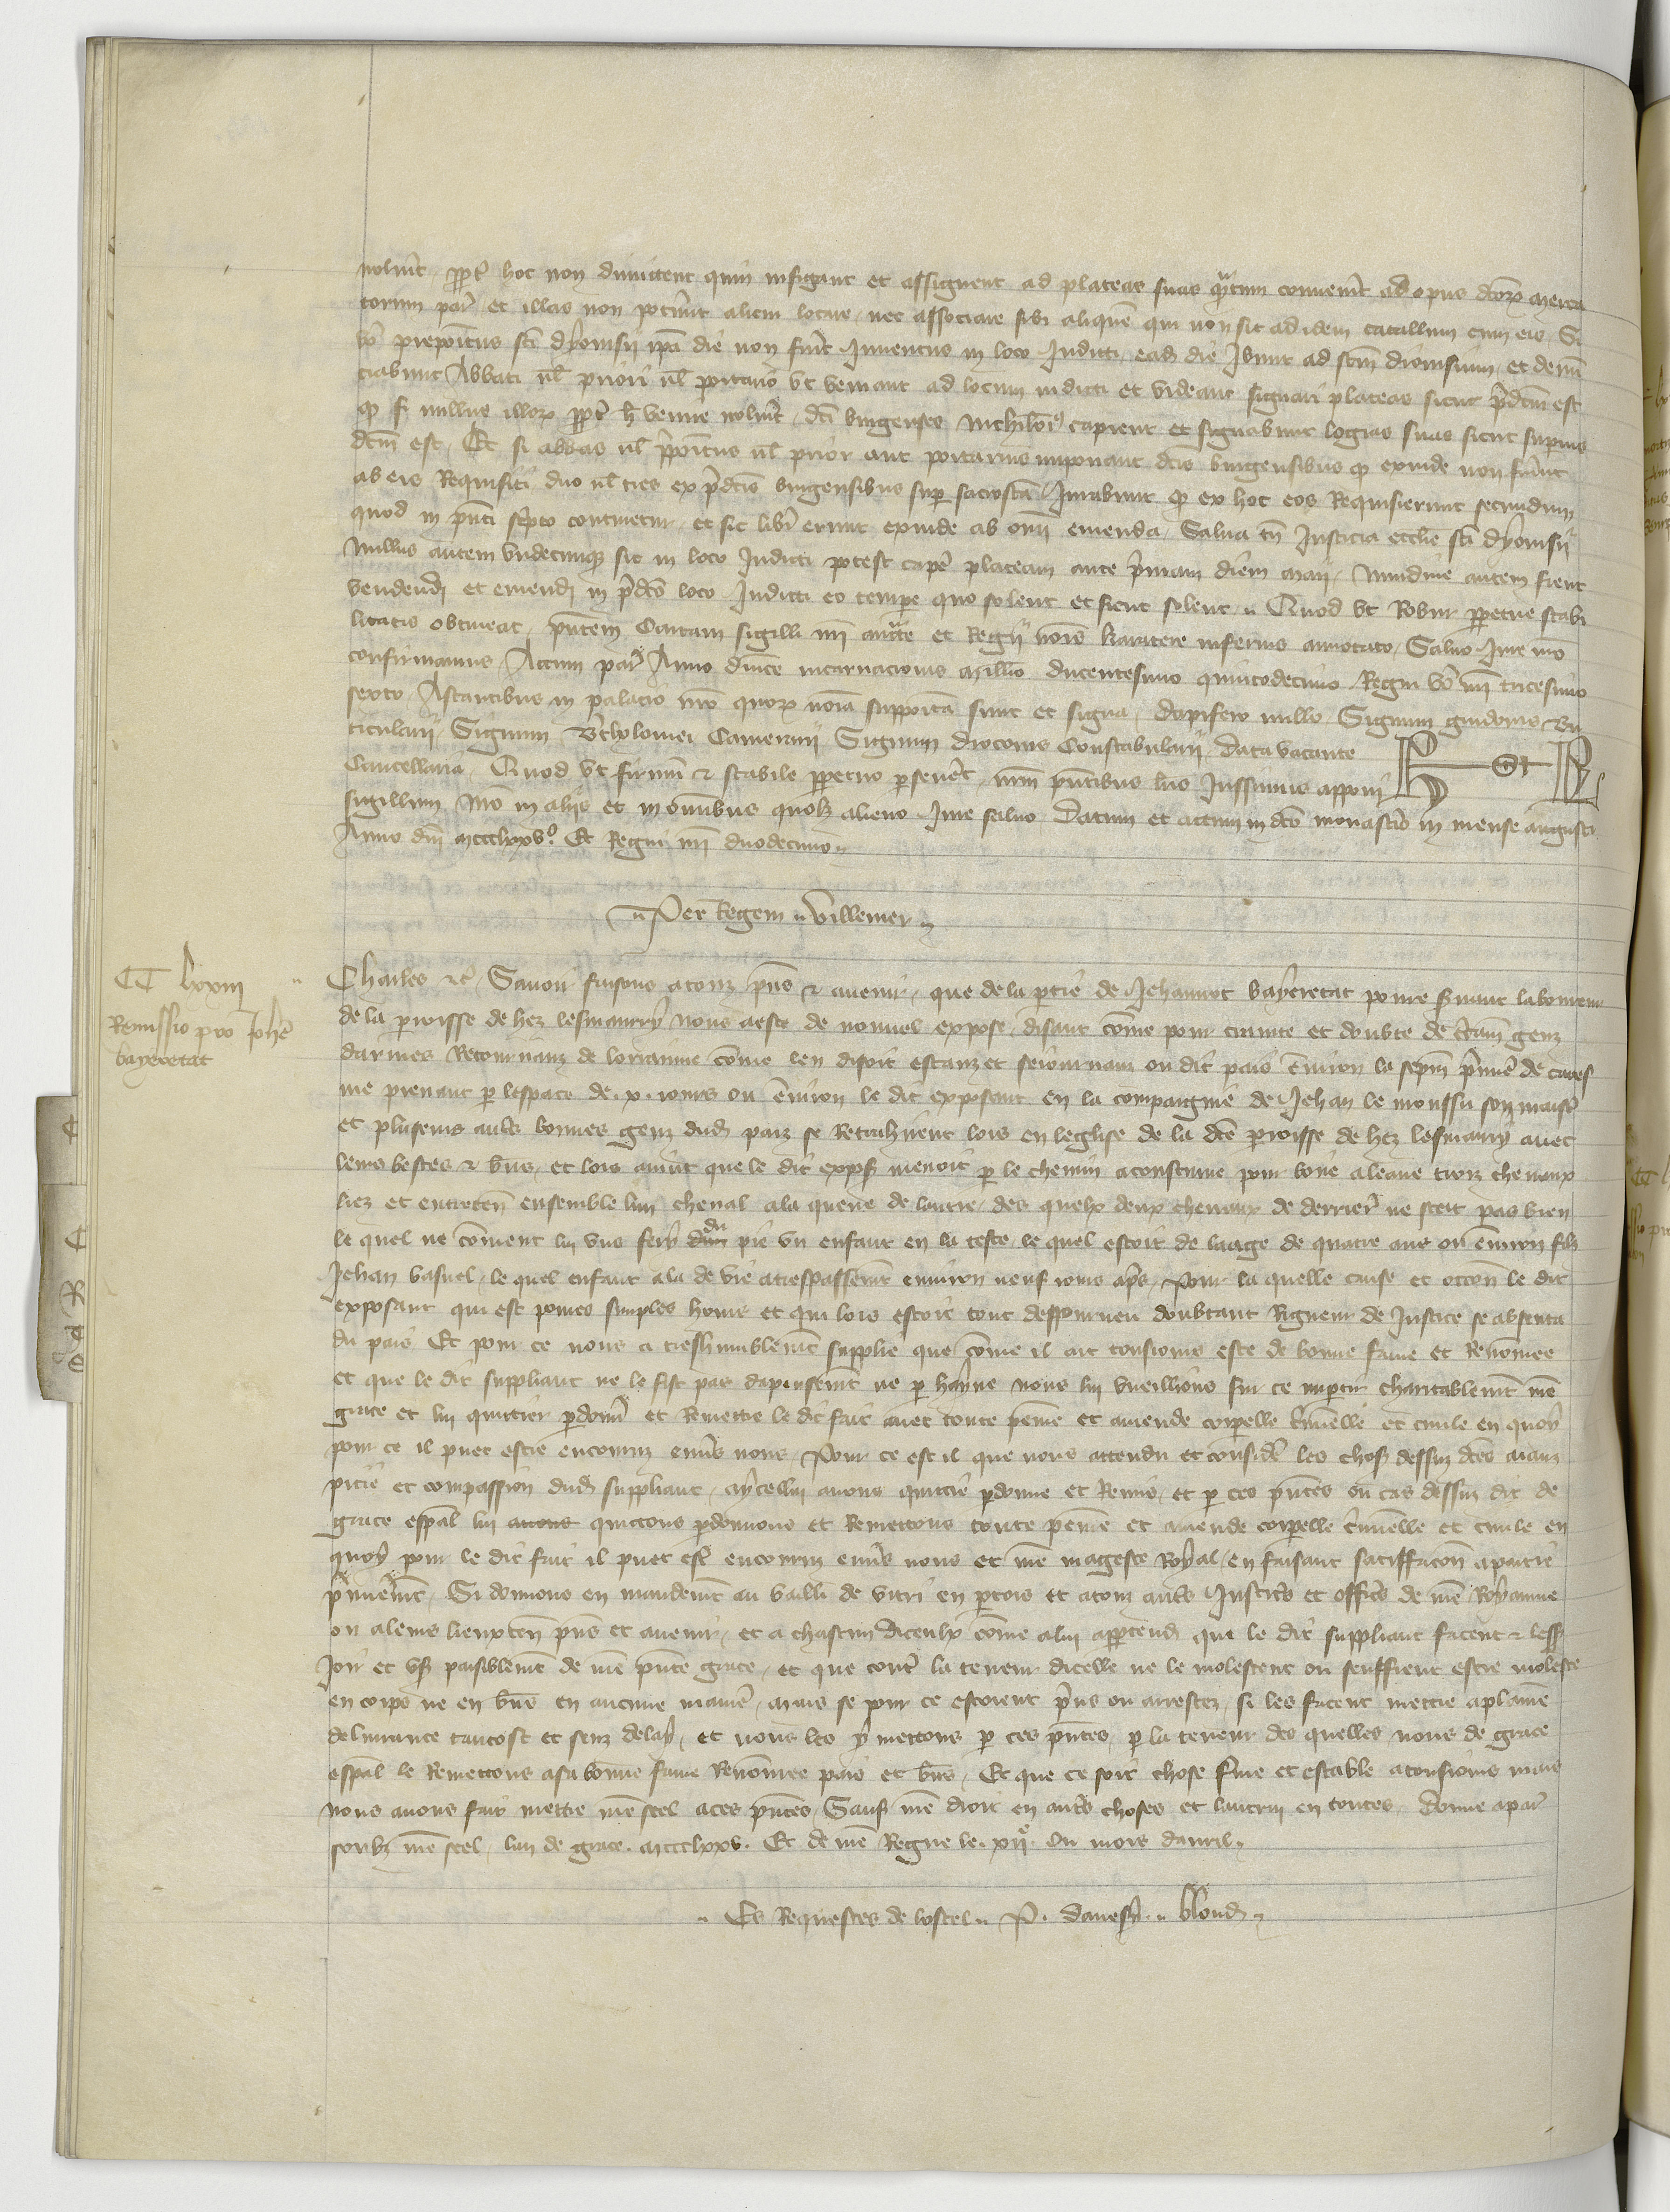 noluerit, pp̄t hoc non dimittent quin infigant et assignent ad plateas suas q̄ntum convenit ad opus dcōꝝ merca
torum par̄ et illas non poterunt alicui locare, nec associare sibi aliquē qui non sit ad idem catallum cum eis. Si
v̄o prepoītus sc̄i dyonisii ip̄a die non fuit inventus in loco Indicti, eadē die Ibunt ad sc̄m dionisium, et denū
ciabunt Abbati ul̄ priori ul̄ portario vt veniant ad locum indicti et videant signari plateas sicut p̄dc̄m est
qͥ si nullus illoꝝ pp̄t h̄ venire noluit, dc̄i burgenses nichilōi⁹ capient et signabunt logias suas sicut supius
dc̄m est, Et si abbas ul̄ p̄poītus ul̄ prior aut portarius imponant dc̄is burgensibus qͥ exinde non fuerunt
ab eis Requisiti duo ul̄ tres ex p̄dc̄is burgensibus super sacrosc̄a Iurabunt qͥ ex hoc eos Requisierunt secundum
quod in p̄nti sc̄pto continetur, et sic lib̄i erunt exinde ab om̄i emenda, Salva tn̄ Iusticia ecclīe sc̄i dyonisii
Nullus autem undecunqꝫ sit in loco Indicti potest cape plateam ante p̄mam diem maii, Nundine autem fient
vendendi et emendi in p̄dc̄o loco Indicti eo tempe quo solent et sicut solent, Quod vt Robur ppetue stabi
litatis obtineat, p̄ntem Cartam sigilli nr̄i auc̄te et Regii noīs karatere inferius annotato, Salvo Iure nr̄o
confirmamus, Actum par̄ Anno dn̄ice incarnacionis millo ducentesimo quintodecimo Regni v̄o nr̄i tricesimo
sexto, Astantibus in palatio nr̄o quoꝝ noīa supposita sunt et signa, dapifero nullo, Signum guidonis Bu
ticularii, Signum Bth̄olomei Camerarii, Signum droconis Constabularii, Data vacante
Cancellaria, Quod vt firmū & stabile ppetuo persevet, nr̄m p̄ntibus lr̄is Iussimus apponi
sigillum, Nr̄o in aliis et in omībus quolꝫ alieno Iure salvo Datum et actum in dc̄o monastio in mense augusti
Anno dn̄i mccclxxvᵒ. Et Regni nr̄i duodecimo
Per Regem Villemer
CC lxxiii
Remissio pro Johē
bayeretat
Charles &c̄ Savoir faisons a touz p̄ns & avenir, que de la ptie de Jehannot bayeretat povre s̄mant laboureur
de la parroisse de hez lesmaury nous a este de nouvel expose, disant cōme pour crainte et doubte de c̄tain̄ genz
darmes Retournanz de lorrainne cōme len disoit estanz et seiournanz ou dit pais Environ la sepm̄ p̄mie de cares
me prenant p lespace de .x. iours ou Environ le dit exposant en la compaignie de Jehan le moussu son maist̄
et pluseurs aut̄s bonnes genz dud paiz se Retrahirent lors en leglise de la dc̄e parroisse de hez lesmaury avec
leurs bestes & b̄ns, et lors avint que le dit exps̄ menoit p le chemin acoustume pour boire a leaue trois chevaux
liez et entreten̄ ensemble lun cheval a la queue de lautre, des quelx deux chevaux de derrier̄ ne scet pas bien
le quel ne cōment lui vns fery du pie vn enfant en la teste, le quel estoit de laage de quatre ans ou environ filz
Jehan vasuel, le quel enfant ala de vie a trespassemt environ neuf iours ap̄s, Pour la quelle cause et occōn le dit
exposant qui est povres simples homs et qui lors estoit tout despourveu doubtant Rigueur de Justice se absenta
du pais Et pour ce nous a treshumblemt supplie que cōme il ait tousiours este de bonne fame et Renōmee
et que le dit suppliant ne le fist pas dapensemt ne p hayne nous lui vueillions sur ce impartir charitablemt nr̄e
grace et lui quittier pdonn̄ et Remettre le dit fait avec toute peine et amende corporelle c̄minelle et civile en quoy
pour ce il puet estre encouruz env̄s nous, Pour ce est il que nous attendu et consider̄ les choses dessuz dc̄es aianz
pitie et compassion dud suppliant, a ycellui avons quittie pdonne et Remis, et p ces p̄ntes ou cas dessuz dit de
grace esp̄al lui avons quittons pdonnons et Remettons toute peine et amende corporelle c̄minelle et civile en
quoy pour le dit fait il puet est̄ encouruz env̄s nous et nr̄e mageste Royal, en faisant satiffacōn a partie
p̄mieremt, Si donnons en mandemt au bailli de vitri en ptois et a touz aut̄s Justic̄s et offic̄s de nr̄e Royaume
ou a leurs lieuxten̄ p̄ns et avenir, et a chascun diceulx cōme a lui appartend̄ que le dit suppliant facent & less̄
Joir et vs̄ paisiblemt de nr̄e p̄nte grace, et que cont̄ la teneur dicelle ne le molestent ou seuffrent estre moleste
en corps ne en b̄ns en aucune manie, mais se pour ce estoient p̄ns ou arrestez, si les facent mettre a plaine
delivrance tantost et senz delay, et nous les y mettons p ces p̄ntes, p la teneur des quelles nous de grace
esp̄al le Remettons a sa bonne fame Renōmee pais et b̄ns, Et que ce soit chose ferme et estable a tousiours mais
nous avons fait mettre nr̄e scel a ces p̄ntes, Sauf nr̄e droit en aut̄s choses et lautrui en toutes, Donne a par̄
soubz nr̄e scel, lan de grace .mccclxxv. Et de nr̄e Regne le .xiiᵉ. Ou mois davril
Es Requestes de lostel P. Danesy. blond